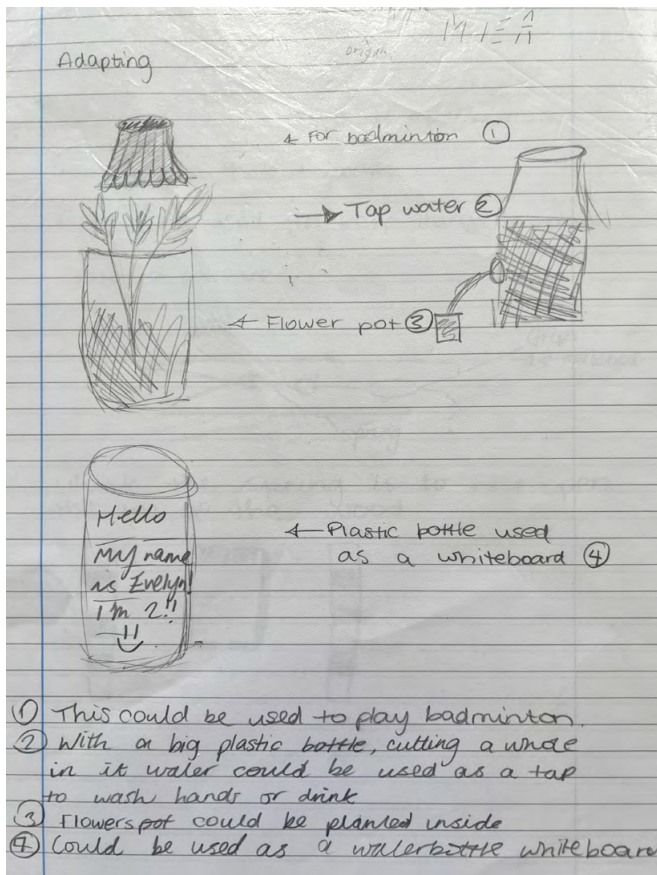 Adapting
For badminton ①
Tap water ②
Flower pot ③
Hello
My name
is Evelyn!
I'm 2!!
Plastic bottle used
as a whiteboard ④
① This could be used to play badminton.
② With a big plastic bottle, cutting a whole
in it water could be used as a tap
to wash hands or drink
③ Flowerspot could be planted inside
④ Could be used as a waterbottle whiteboard